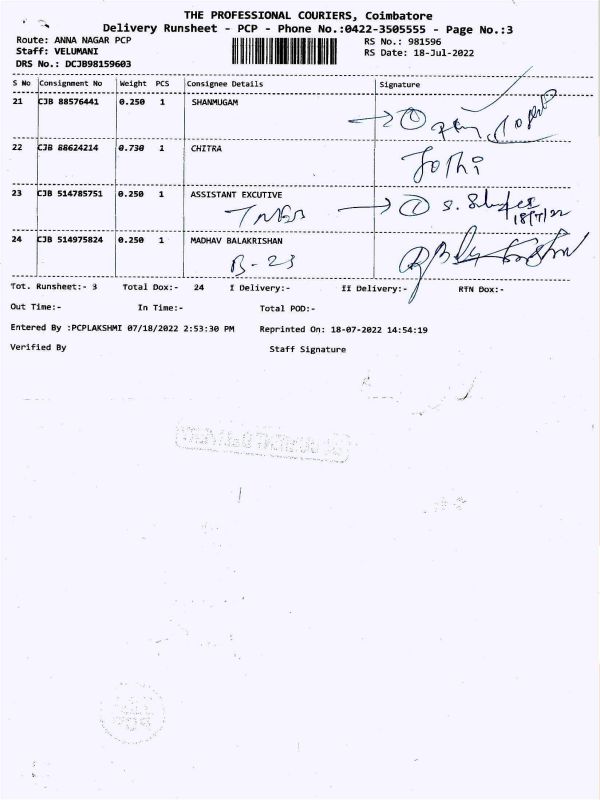 THE PROFESSIONAL COURIERS, Coimbatore
Delivery Runsheet - PCP - Phone No.:0422-3505555 - Page No.:3
Route: ANNA NAGAR PCP
RS No.: 981596
Staff: VELUMANI
RS Date: 18-Jul-2022
DRS No.: DCJB98159603
S No Consignment No Weight PCS Consignee Details Signature
21 CJB 88576441 0.250 1 SHANMUGAM
22 CJB 88624214 0.730 1 CHITRA
Jothi
23 CJB 514785751 0.250 1 ASSISTANT EXCUTIVE
18/7/22
24 CJB 514975824 0.250 1 MADHAV BALAKRISHAN
B-23
Tot. Runsheet:- 3 Total Dox:- 24 I Delivery:- II Delivery:- RTN Dox:-
Out Time:- In Time:- Total POD:-
Entered By :PCPLAKSHMI 07/18/2022 2:53:30 PM Reprinted On: 18-07-2022 14:54:19
Verified By Staff Signature